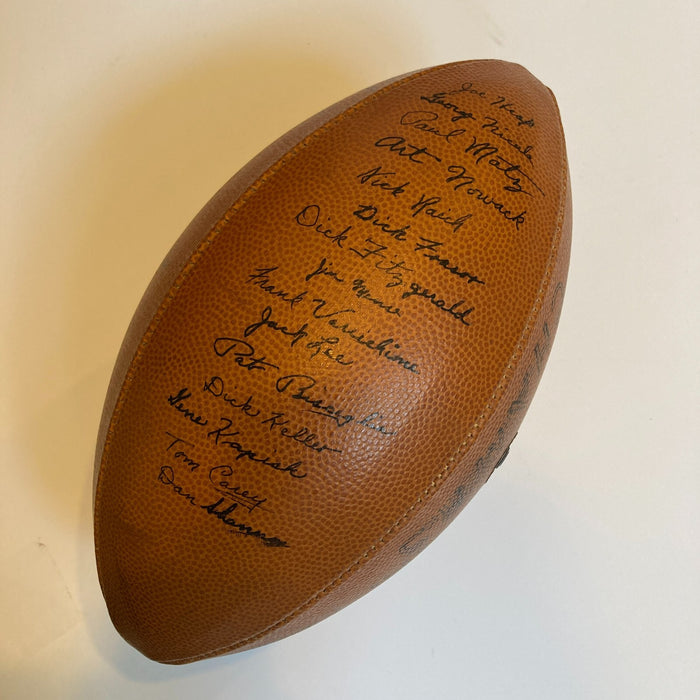 Joe
George Nicula
Paul Matz
Art Nowack
Nick Raich
Dick Frasor
Dick Fitzgerald
Jim Mense
Frank Varrichione
Jack Lee
Pat Bisceglia
Dick Keller
Gene Kapish
Tom Carey
Dan Shannon